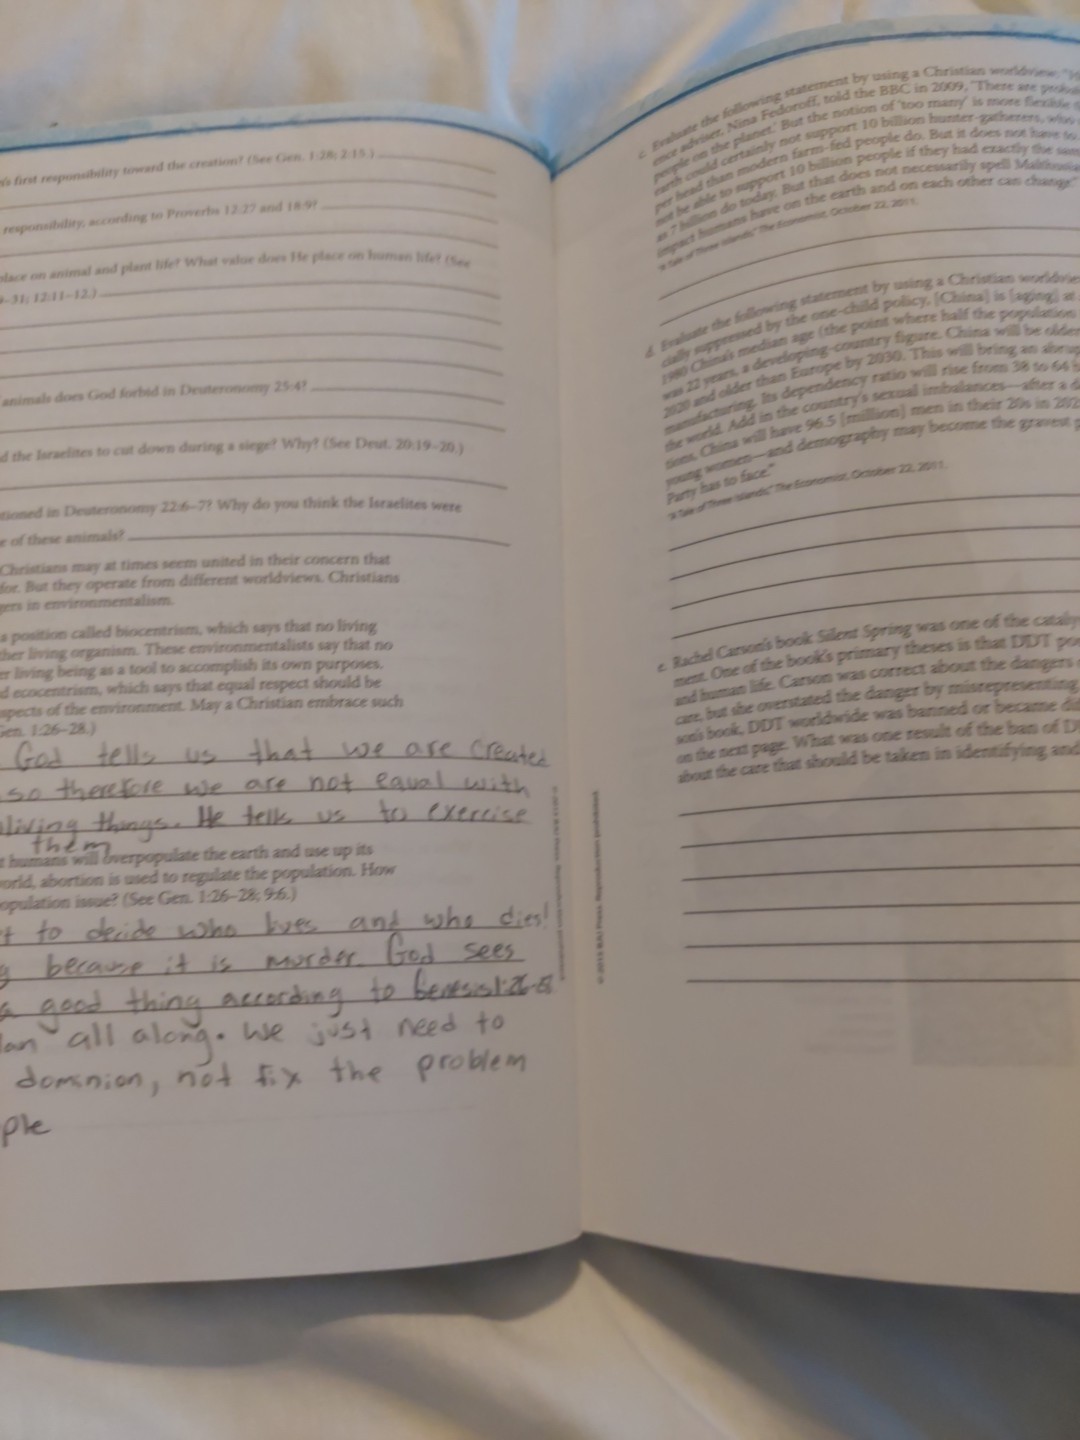 's first responsibility toward the creation? (See Gen. 1:28; 2:15.)
responsibility, according to Proverbs 12:27 and 18:9?
place on animal and plant life? What value does He place on human life? (See
–31; 12:11–12.)
animals does God forbid in Deuteronomy 25:4?
d the Israelites to cut down during a siege? Why? (See Deut. 20:19–20.)
tioned in Deuteronomy 22:6–7? Why do you think the Israelites were
e of these animals?
Christians may at times seem united in their concern that
for. But they operate from different worldviews. Christians
gers in environmentalism.
a position called biocentrism, which says that no living
ther living organism. These environmentalists say that no
er living being as a tool to accomplish its own purposes.
d ecocentrism, which says that equal respect should be
spects of the environment. May a Christian embrace such
Gen. 1:26–28.)
God tells us that we are created
so therefore we are not equal with
living things. He tells us to exercise
them
t humans will overpopulate the earth and use up its
world, abortion is used to regulate the population. How
opulation issue? (See Gen. 1:26–28; 9:6.)
t to decide who lives and who dies!
g because it is murder. God sees
a good thing according to Genesis
lan all along. We just need to
dominion, not fix the problem
ple
c. Evaluate the following statement by using a Christian worldview:
ence adviser, Nina Fedoroff, told the BBC in 2009, 'There are
people on the planet.' But the notion of 'too many' is more flexible
earth could certainly not support 10 billion hunter-gatherers, who
per head than modern farm-fed people do. But it does not have to
not be able to support 10 billion people if they had exactly the
as 7 billion do today. But that does not necessarily spell
impact humans have on the earth and on each other can change."
"A Tale of Three Islands," The Economist, October 22, 2011.
d. Evaluate the following statement by using a Christian
cially suppressed by the one-child policy, [China] is [aging] at
1980 China's median age (the point where half the population
was 22 years, a developing-country figure. China will be older
2020 and older than Europe by 2030. This will bring an
manufacturing. Its dependency ratio will rise from 38 to 64
the world. Add in the country's sexual imbalances—after a
tions, China will have 96.5 [million] men in their 20s in
young women—and demography may become the gravest
Party has to face."
"A Tale of Three Islands," The Economist, October 22, 2011.
e. Rachel Carson's book Silent Spring was one of the
ment. One of the book's primary theses is that DDT
and human life. Carson was correct about the dangers
care, but she overstated the danger by misrepresenting
son's book, DDT worldwide was banned or became
on the next page. What was one result of the ban of
about the care that should be taken in identifying and
BJU Press. Reproduction prohibited.